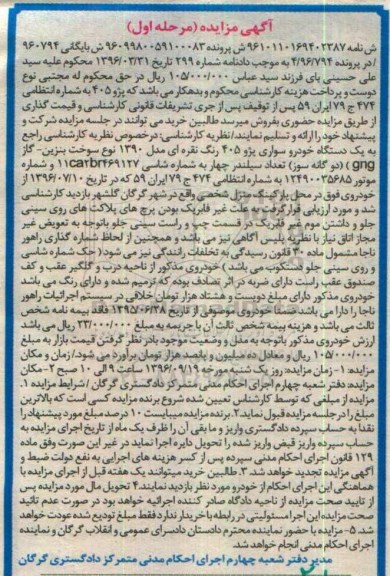 آگهی مزایده (مرحله اول)
ش نامه ۹۶۱۰۱۱۰۱۶۹۴۰۲۳۸۷ ش پرونده ۹۶۰۹۹۸۰۰۵۹۱۰۰۰۸۳ ش بایگانی ۹۶۰۷۹۴
/در پرونده ۴/۹۶/۷۹۴ به موجب دادنامه شماره ۲۹۹ تاریخ ۱۳۹۶/۰۳/۳۱ محکوم علیه سید
علی حسینی بای فرزند سید عباس ۱۰۵/۰۰۰/۰۰۰ ریال در حق محکوم له مجتبی نوع
دوست و پرداخت هزینه کارشناسی محکوم و بدهکار می باشد که پژو ۴۰۵ به شماره انتظامی
۴۷۴ ج ۷۹ ایران ۵۹ پس از توقیف پس از جری تشریفات قانونی کارشناسی و قیمت گذاری
از طریق مزایده حضوری بفروش میرسد طالبین خرید می توانند در جلسه مزایده شرکت و
پیشنهاد خود را ارائه و تسلیم نمایند/نظریه کارشناسی: درخصوص نظریه کارشناسی راجع
به یک دستگاه خودرو سواری پژو ۴۰۵ رنگ نقره ای مدل ۱۳۹۰ نوع سوخت بنزین- گاز
gng ) (دو گانه سوز) تعداد سیلندر چهار به شماره شاسی ۱۱carbr۴۶۹۱۲۷ و شماره
موتور ۱۲۴۹۰۰۳۵۶۸۵ به شماره انتظامی ۴۷۴ ج ۷۹ ایران ۵۹ که در تاریخ ۱۳۹۶/۰۷/۱۰ از
خودروی فوق در محل پارکینگ منزل شخصی واقع در شهر گرگان گلشهر بازدید کارشناسی
شد و مورد ارزیابی قرار گرفت به علت غیر فابریک بودن پرچ های پلاکت های روی سینی
جلو و داشتن موم غیر فابریک در قسمت چپ و راست سینی جلو باتوجه به تعویض غیر
مجاز اتاق نیاز با نظریه پلیس آگاهی نیز می باشد و همچنین از لحاظ شماره گذاری راهور
ناجا مشمول ماده ۳۰ قانون رسیدگی به تخلفات رانندگی نیز می شود( حک شماره شاسی
و روی سینی جلو منکتوب می باشد ) خودروی مذکور از ناحیه درب و گلگیر عقب و کف
صندوق عقب راست دارای ضربه در اثر تصادف بوده که ترمیم شده و دارای رنگ می باشد
خودروی مذکور دارای مبلغ دویست و هشتاد هزار تومان خلافی در سیستم اجرائیات راهور
ناجا را دارا می باشد ضمنا خودروی موصوفی از تاریخ ۱۳۹۵/۰۶/۳۸ فاقد بیمه نامه شخص
ثالث می باشد و هزینه بیمه شخص ثالث آن با جریمه به مبلغ ۲۳/۰۰۰/۰۰۰ ریال می باشد
ارزش خودروی مذکور باتوجه به مدل و وضعیت موجود بادر نظر گرفتن قیمت بازار به مبلغ
۱۰۵/۰۰۰/۰۰۰ ریال و معادل ده میلیون و پانصد هزار تومان برآورد می شود./زمان و مکان
مزایده: ۱- زمان مزایده: روز یک شنبه مورخه ۱۳۹۶/۰۹/۱۹ ساعت ۹ الی ۱۰ صبح ۲- مکان
مزایده: دفتر شعبه چهارم اجرای احکام مدنی متمرکز دادگستری گرگان / شرایط مزایده ۱.
مزایده از مبلغی که توسط کارشناس تعیین شده شروع برنده مزایده کسی است که بالاترین
مبلغ را در جلسه مزایده قبول نماید ۲. برنده مزایده میبایست ۱۰ درصد مبلغ مورد پیشنهاد را
نقدا به حساب سپرده دادگستری واریز و ما بقی آن را ظرف یک ماه از تاریخ اجرای مزایده به
حساب سپرده واریز قبض واریز شده را تحویل دایره اجرا نماید در غیر این صورت وفق ماده
۱۲۹ قانون اجرای احکام مدنی سپرده پس از کسر هزینه های اجرایی به نفع دولت ضبط و
آگهی مزایده تجدید خواهد شد ۳. طالبین خرید میتوانند یک هفته قبل از اجرای مزایده با
هماهنگی این اجرای احکام از خودرو مورد نظر بازدید نمایند.۴ تحویل مال مورد مزایده پس
از تایید صحت مزایده از ناحیه دادگاه صادر کننده اجرائیه خواهد بود در صورت عدم تائید
صحت مزایده این اجرا مسئولیتی در رابطه با خریدار ندارد فقط مبلغ تودیع شده عودت خواهد
شد. ۵- مزایده با حضور نماینده محترم دادستان دادسرای عمومی و انقلاب گرگان و نماینده
اجرای احکام مدنی انجام خواهد شد.
مدیر دفتر شعبه چهارم اجرای احکام مدنی متمرکز دادگستری گرگان